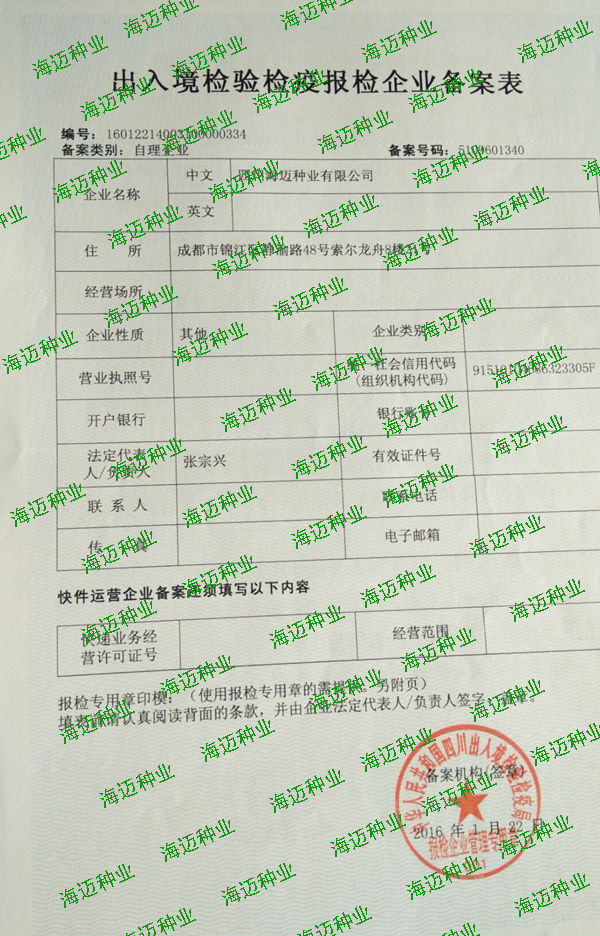 出入境检验检疫报检企业备案表
编号：
备案类别：自理企业
备案号码：
企业名称
中文
海迈种业有限公司
英文
住 所
成都市锦江区 路48号索尔龙舟
经营场所
企业性质
其他
企业类别
营业执照号
社会信用代码
(组织机构代码)
开户银行
银行账
法定代表
人/负责人
张宗兴
有效证件号
联 系 人
联系电话
传
电子邮箱
快件运营企业备案还须填写以下内容
快递业务经
营许可证号
经营范围
报检专用章印模：（使用报检专用章的需提供。另附页）
填表前请认真阅读背面的条款，并由企业法定代表人/负责人签字、盖章。
备案机构(签章)
2016 年 1 月 22 日
中华人民共和国四川出入境检验检疫局
报检企业管理专用章
海迈种业